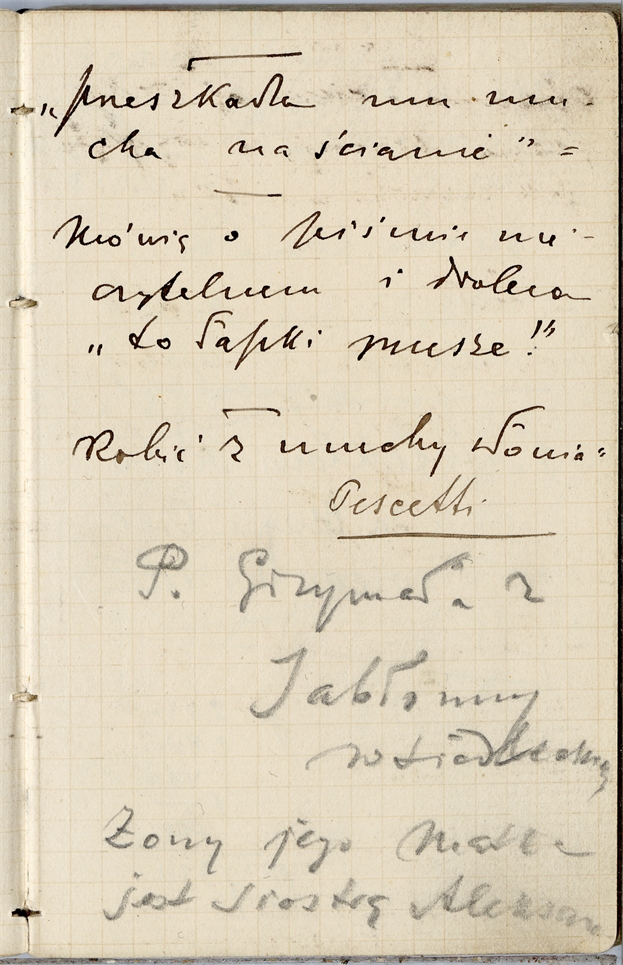 „przeszkadza mu mu-
cha na ścianie” =
Mówią o piśmie nie-
czytelnem i drobnem
„to łapki musze!”
Robić z muchy słonia =
Pescetti
P. Grzymała z
Jabłonny
w siedleckiej
Żony jego Matka
jest siostrą Aleksan